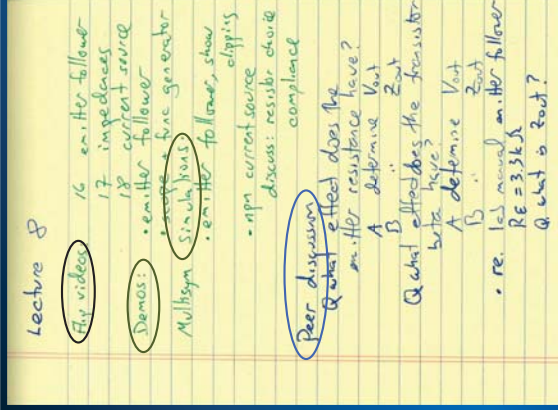 Lecture 8
Any videos 16 emitter follower
17 impedances
18 current source
Demos: • emitter follower
• func generator
Multisym Simulations:
• emitter follower, show
clipping
• npn current source
discuss: resistor choice
compliance
Peer discussion
Q what effect does the
emitter resistance have?
A determine Vout
B " Zout
Q what effect does the transistor
beta have?
A determine Vout
B " Zout
• re. lab manual emitter follower
RE = 3.3 kΩ
Q what is Zout?